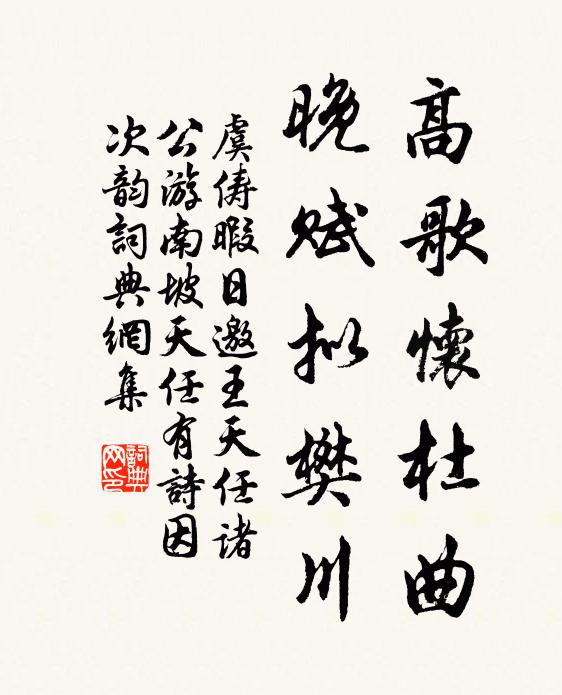 高歌懷杜曲
晚賦拟樊川
虞俦暇日邀王天任诸
公游南坡天任有詩因
次韵詞典網集
詞典網印